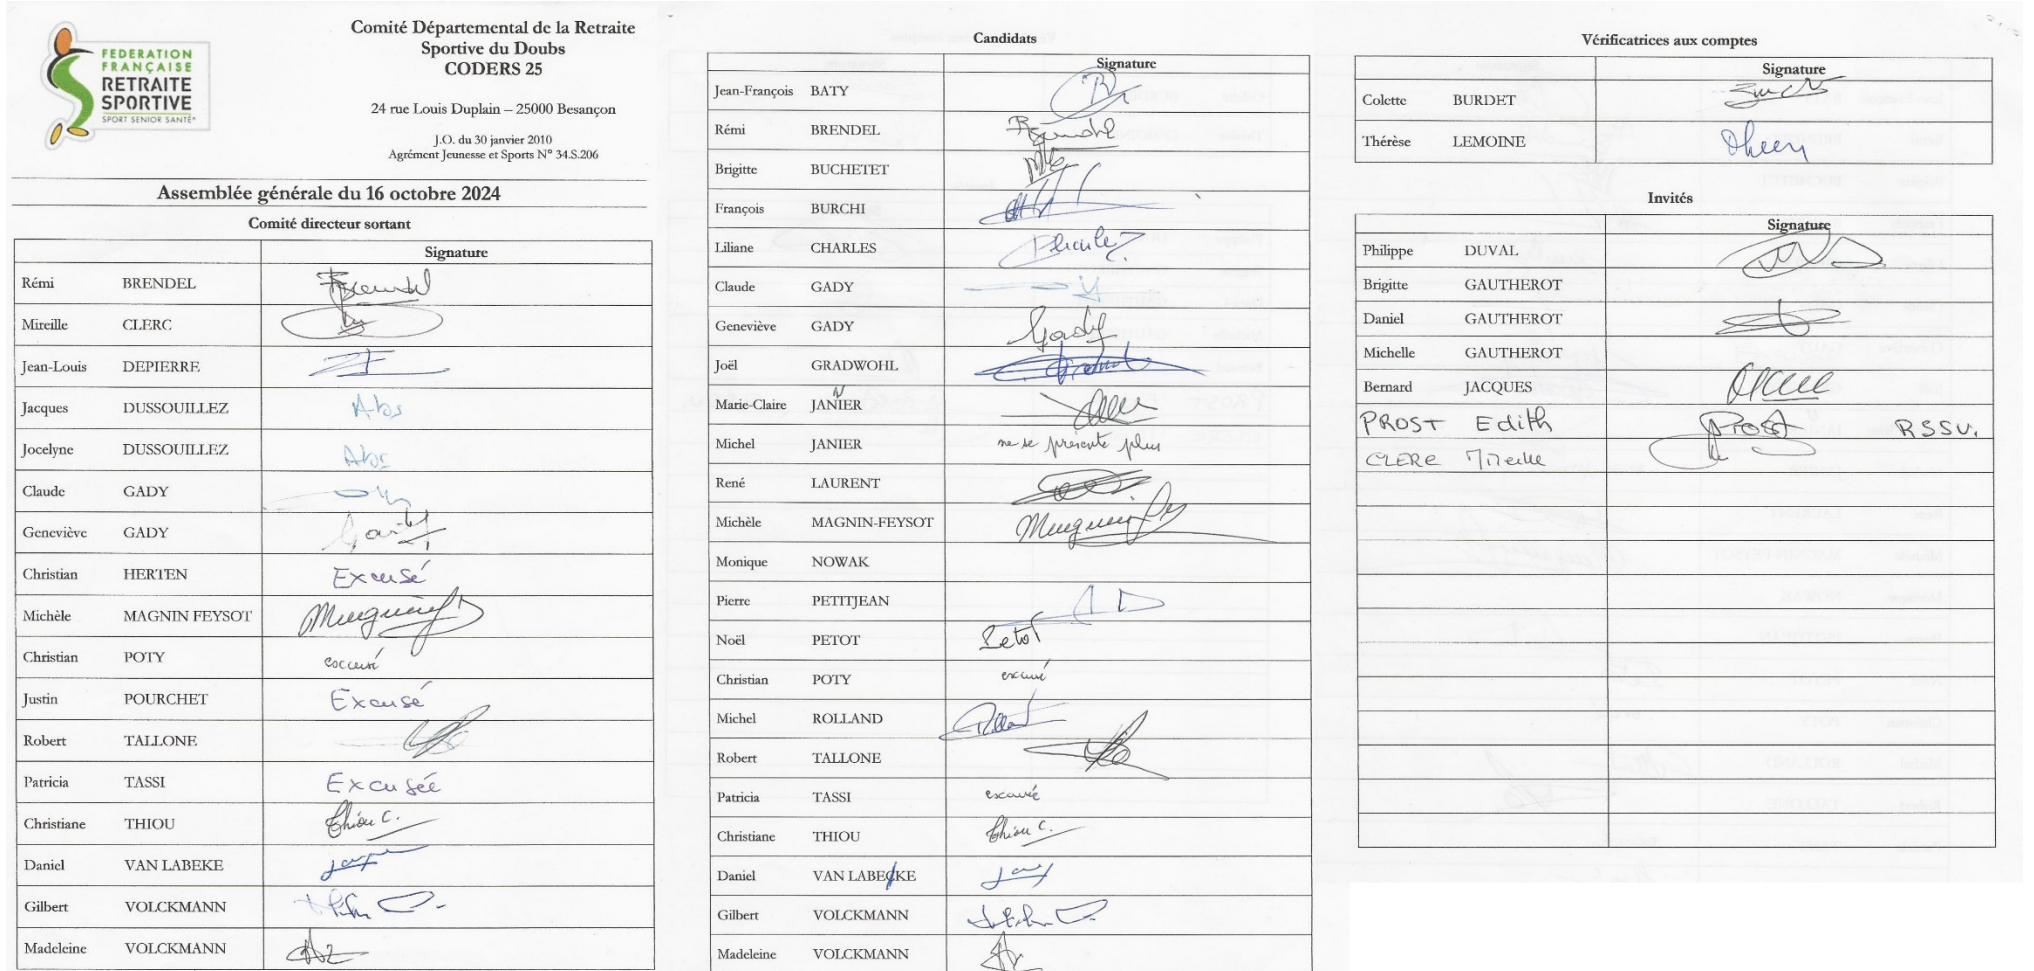 FEDERATION
FRANÇAISE
RETRAITE
SPORTIVE
SPORT SENIOR SANTÉ®
Comité Départemental de la Retraite
Sportive du Doubs
CODERS 25
24 rue Louis Duplain – 25000 Besançon
J.O. du 30 janvier 2010
Agrément Jeunesse et Sports N° 34.S.206
Assemblée générale du 16 octobre 2024
Comité directeur sortant
Signature
Rémi BRENDEL Brendel
Mireille CLERC
Jean-Louis DEPIERRE
Jacques DUSSOUILLEZ Abs
Jocelyne DUSSOUILLEZ Abs
Claude GADY
Geneviève GADY Gady
Christian HERTEN Excusé
Michèle MAGNIN FEYSOT
Christian POTY excusé
Justin POURCHET Excusé
Robert TALLONE
Patricia TASSI Excusée
Christiane THIOU Thiou C.
Daniel VAN LABEKE
Gilbert VOLCKMANN
Madeleine VOLCKMANN
Candidats
Signature
Jean-François BATY
Rémi BRENDEL Brendel
Brigitte BUCHETET
François BURCHI
Liliane CHARLES
Claude GADY
Geneviève GADY Gady
Joël GRADWOHL
Marie-Claire JANIER
Michel JANIER ne se présente plus
René LAURENT
Michèle MAGNIN-FEYSOT
Monique NOWAK
Pierre PETITJEAN
Noël PETOT Petot
Christian POTY excusé
Michel ROLLAND Rolland
Robert TALLONE
Patricia TASSI excusée
Christiane THIOU Thiou C.
Daniel VAN LABECKE
Gilbert VOLCKMANN
Madeleine VOLCKMANN
Vérificatrices aux comptes
Signature
Colette BURDET
Thérèse LEMOINE
Invités
Signature
Philippe DUVAL
Brigitte GAUTHEROT
Daniel GAUTHEROT
Michelle GAUTHEROT
Bernard JACQUES
PROST Edith Prost RSSV.
CLERC Mireille